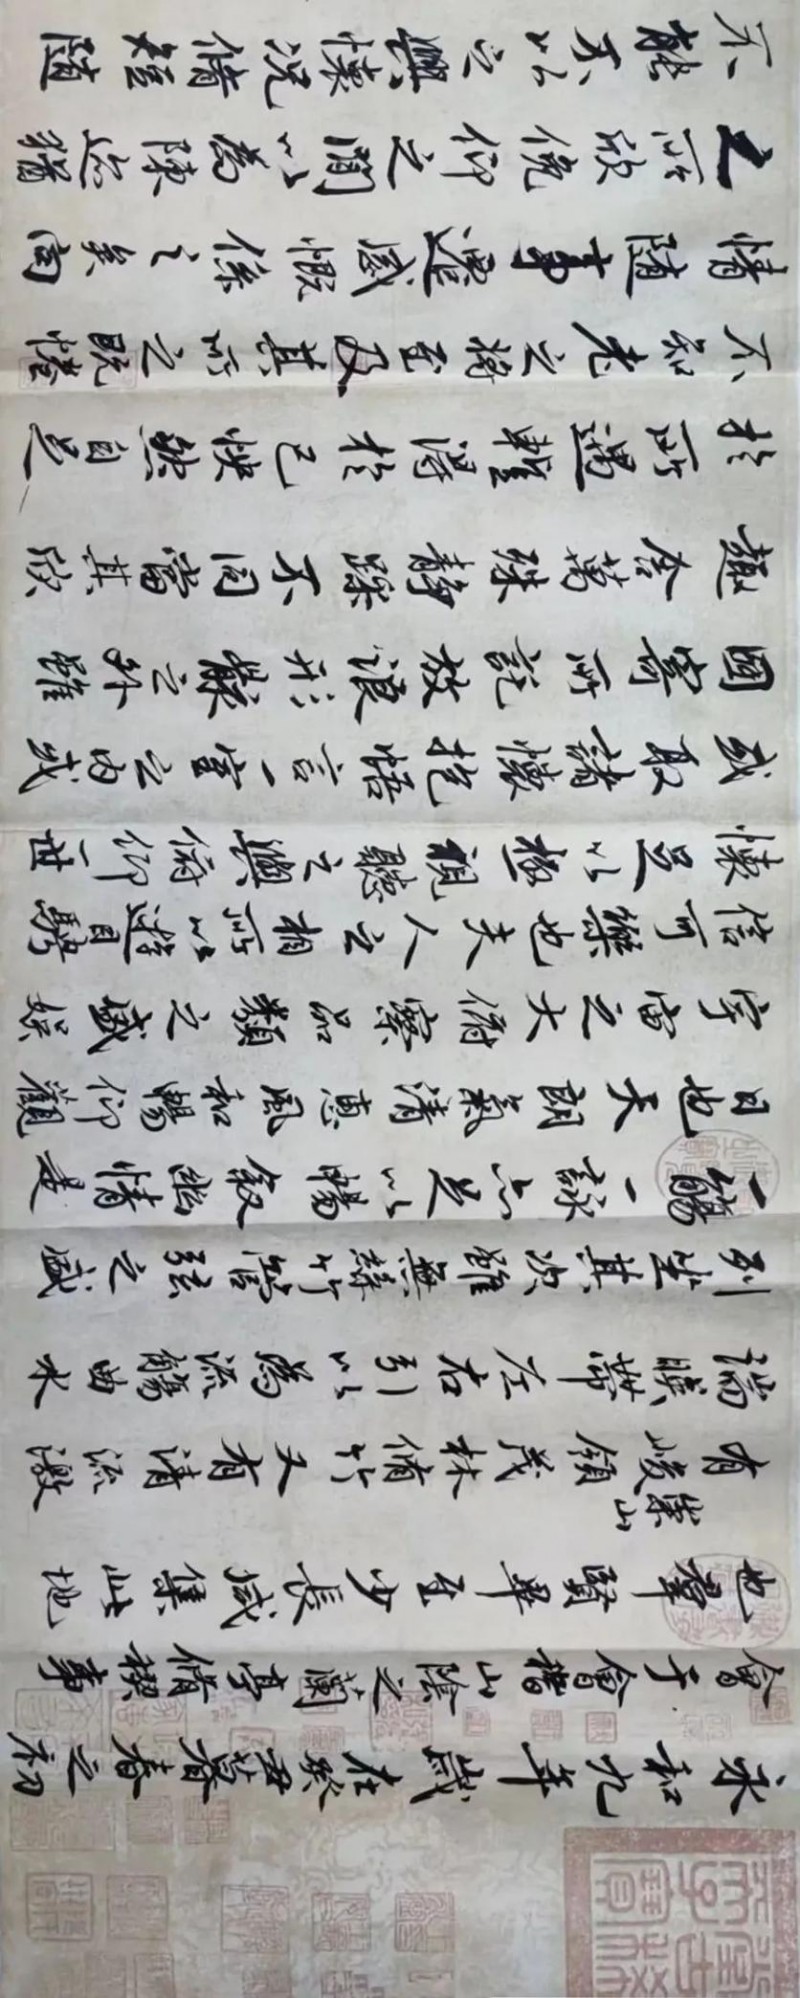 永和九年歲在癸丑暮春之初
會于會稽山陰之蘭亭脩禊事
也羣賢畢至少長咸集此地
有崇山峻領茂林脩竹又有清流激
湍暎帶左右引以為流觴曲水
列坐其次雖無絲竹管弦之盛
一觴一詠亦足以暢敘幽情是
日也天朗氣清惠風和暢仰觀
宇宙之大俯察品類之盛娛
信可樂也夫人之相所以遊目騁
懷足以極視聽之與俯仰一世
或取諸懷抱悟言一室之內或
因寄所託放浪形骸之外雖
趣舍萬殊靜躁不同當其欣
於所遇暫得於己快然自足
不知老之將至及其所之既惓
情隨事遷感慨係之矣向
之所欣俛仰之間以為陳迹猶
不能不以之興懷況脩短隨